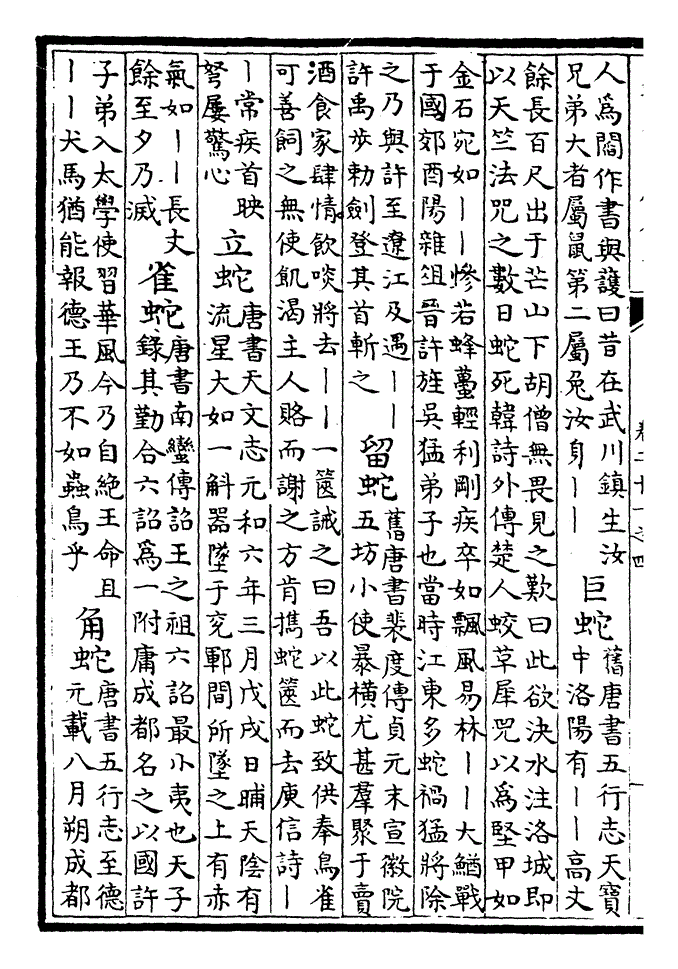 人為閻作書與護曰昔在武川鎮生汝
兄弟大者屬鼠第二屬兔汝身｜｜
巨蛇
舊唐書五行志天寶
中洛陽有｜｜高丈
餘長百尺出于芒山下胡僧無畏見之歎曰此欲決水注洛城即
以天竺法咒之數日蛇死韓詩外傳楚人蛟草犀咒以為堅甲如
金石宛如｜｜慘若蜂蠆輕利剛疾卒如飄風易林｜｜大鰌戰
于國郊酉陽雜俎晉許旌吳猛弟子也當時江東多蛇禍猛將除
之乃與許至遼江及遇｜｜
許禹步勅劍登其首斬之
留蛇
舊唐書裴度傳貞元末宣徽院
五坊小使暴橫尤甚羣聚于賣
酒食家肆情飲啖將去｜｜一篋誡之曰吾以此蛇致供奉鳥雀
可善飼之無使飢渴主人賂而謝之方肯擕蛇篋而去庾信詩｜
｜常疾首映
弩屢驚心
立蛇
唐書天文志元和六年三月戊戌日晡天陰有
流星大如一斛器墜于兖鄆間所墜之上有赤
氣如｜｜長丈
餘至夕乃滅
雀蛇
唐書南蠻傳詔王之祖六詔最小夷也天子
錄其勤合六詔為一附庸成都名之以國許
子弟入太學使習華風今乃自絶王命且
｜｜犬馬猶能報德王乃不如蟲鳥乎
角蛇
唐書五行志至德
元載八月朔成都